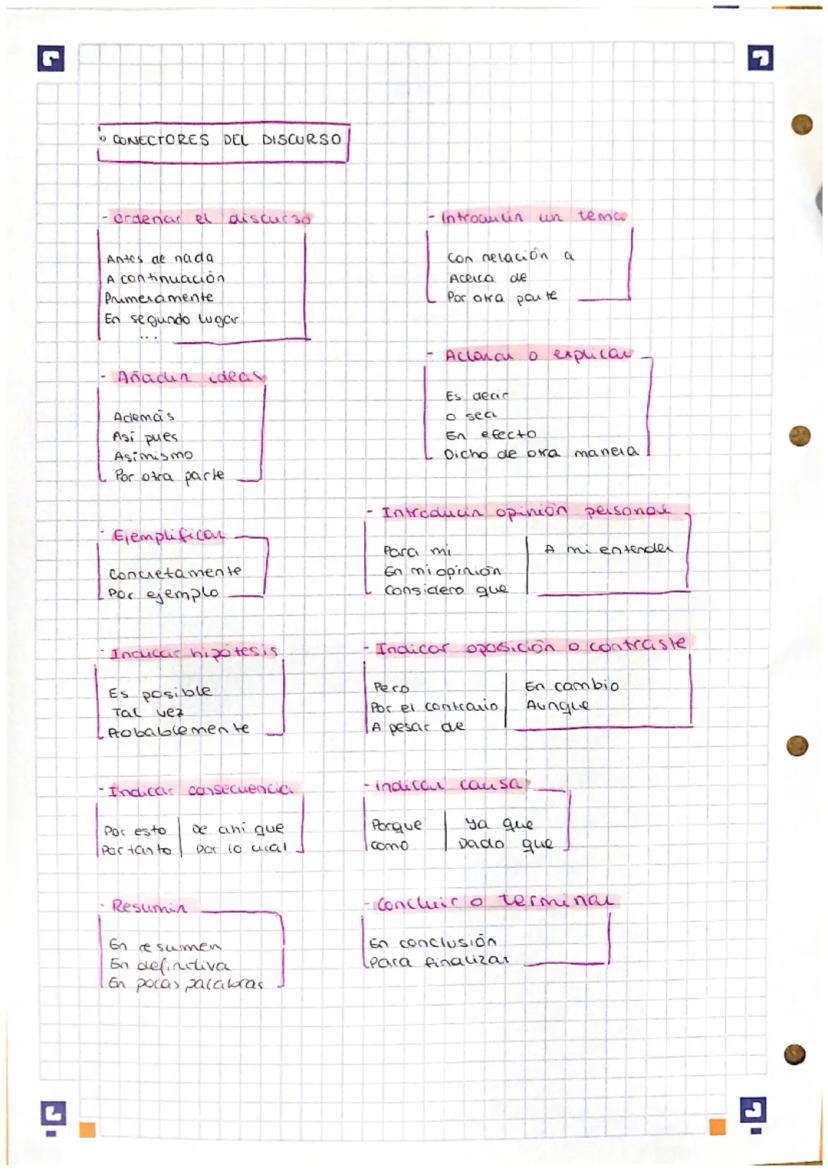 ° CONECTORES DEL DISCURSO
- ordenar el discurso
Antes de nada
A continuación
Primeramente
En segundo lugar
...
- Introducir un tema
Con relación a
Acerca de
Por otra parte
- Añadir ideas
Además
Así pues
Asimismo
Por otra parte
- Aclarar o explicar
Es decir
o sea
En efecto
Dicho de otra manera
- Ejemplificar
Concretamente
Por ejemplo
- Introducir opinión personal
Para mi
En mi opinión
Considero que
A mi entender
- Indicar hipótesis
Es posible
Tal vez
Probablemente
- Indicar oposición o contraste
Pero
Por el contrario
A pesar de
En cambio
Aunque
- Indicar consecuencia
Por esto
Por tanto
De ahi que
Por lo cual
- indicar causa
Porque
como
ya que
Dado que
- Resumir
En resumen
En definitiva
En pocas palabras
- Concluir o terminar
En conclusión
Para finalizar